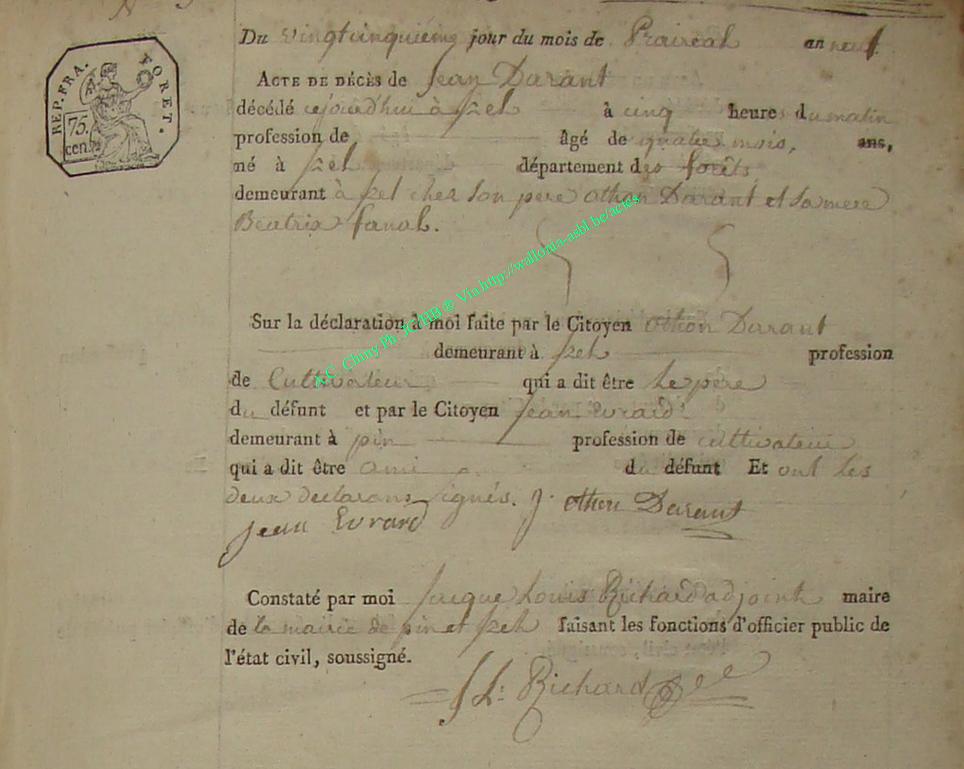 Du vingtcinquiéme jour du mois de Prairéal an neuf
REP. FRA. FORET.
75. cen.es
ACTE DE DÉCÈS de Jean Darant
décédé cejourdhui à izel à cinq heures du matin
profession de âgé de quatre mois, ans,
né à izel département des forêts
demeurant à izel chez son pere othon Darant et sa mere
Beatrix fanal.
A.C. Chiny Ph: JC/HB @ Via http://wallonia-asbl.be/actes
Sur la déclaration à moi faite par le Citoyen othon Darant
demeurant à izel profession
de Cultivateur qui a dit être le pere
du défunt et par le Citoyen jean evrard
demeurant à pin profession de cultivateur
qui a dit être ami du défunt Et ont les
deux declarans signés. J. othon Darant
jean Evrard
Constaté par moi Jacque Louis Richard adjoint maire
de la mairie de pin et izel faisant les fonctions d'officier public de
l'état civil, soussigné.
J L: Richard